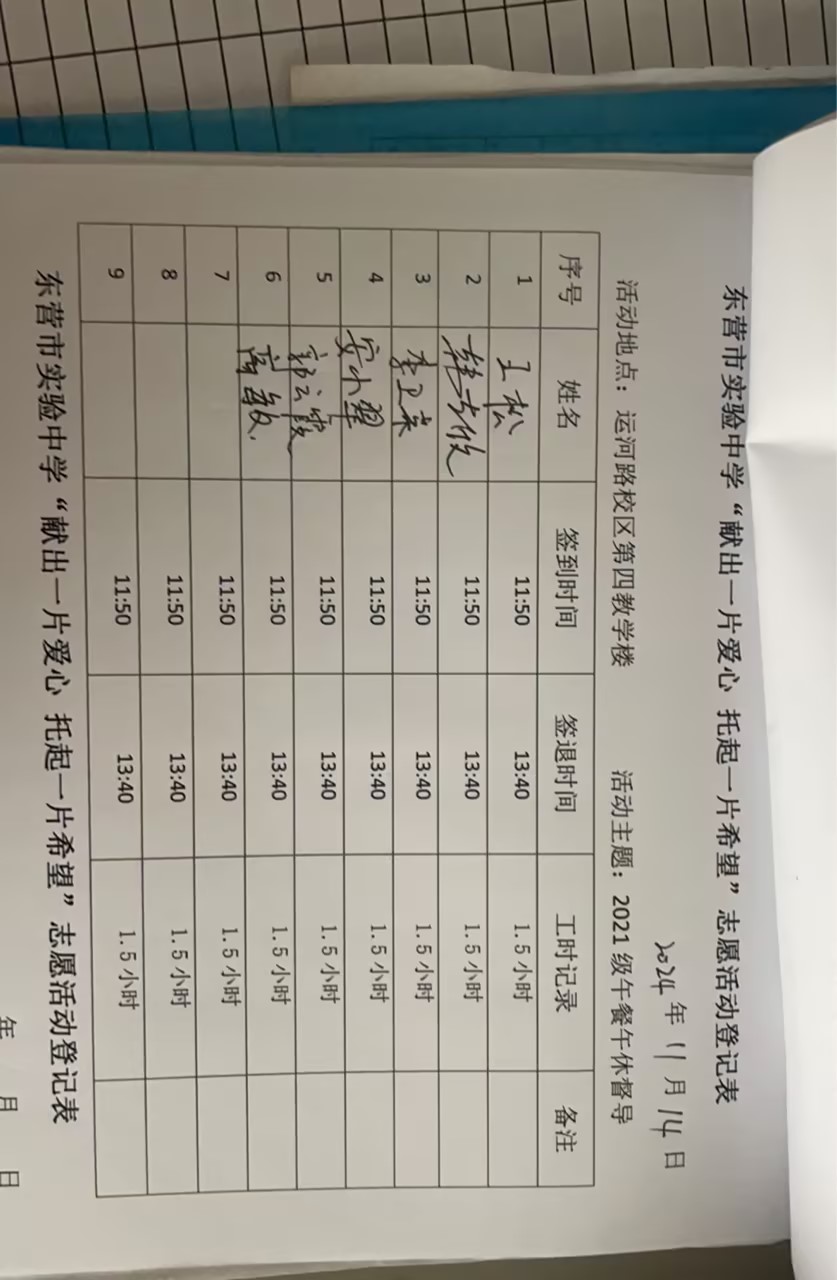 东营市实验中学“献出一片爱心 托起一片希望”志愿活动登记表
2024年11月14日
活动地点：运河路校区第四教学楼 活动主题：2021级午餐午休督导
序号 姓名 签到时间 签退时间 工时记录 备注
1 王松 11:50 13:40 1.5小时
2 11:50 13:40 1.5小时
3 李卫东 11:50 13:40 1.5小时
4 安小翠 11:50 13:40 1.5小时
5 郭云霞 11:50 13:40 1.5小时
6 高敏 11:50 13:40 1.5小时
7 11:50 13:40 1.5小时
8 11:50 13:40 1.5小时
9 11:50 13:40 1.5小时
东营市实验中学“献出一片爱心 托起一片希望”志愿活动登记表
年 月 日